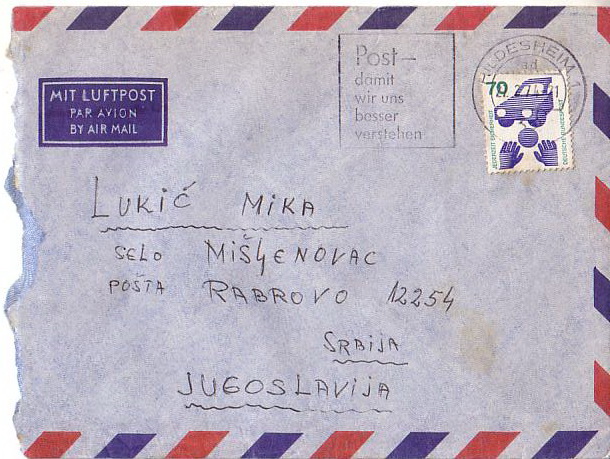 Post –
damit
wir uns
besser
verstehen
HILDESHEIM 1
70
JEDERZEIT SICHERHEIT
DEUTSCHE BUNDESPOST
MIT LUFTPOST
PAR AVION
BY AIR MAIL
LUKIĆ MIKA
SELO MIŠLJENOVAC
POŠTA RABROVO 12254
SRBIJA
JUGOSLAVIJA